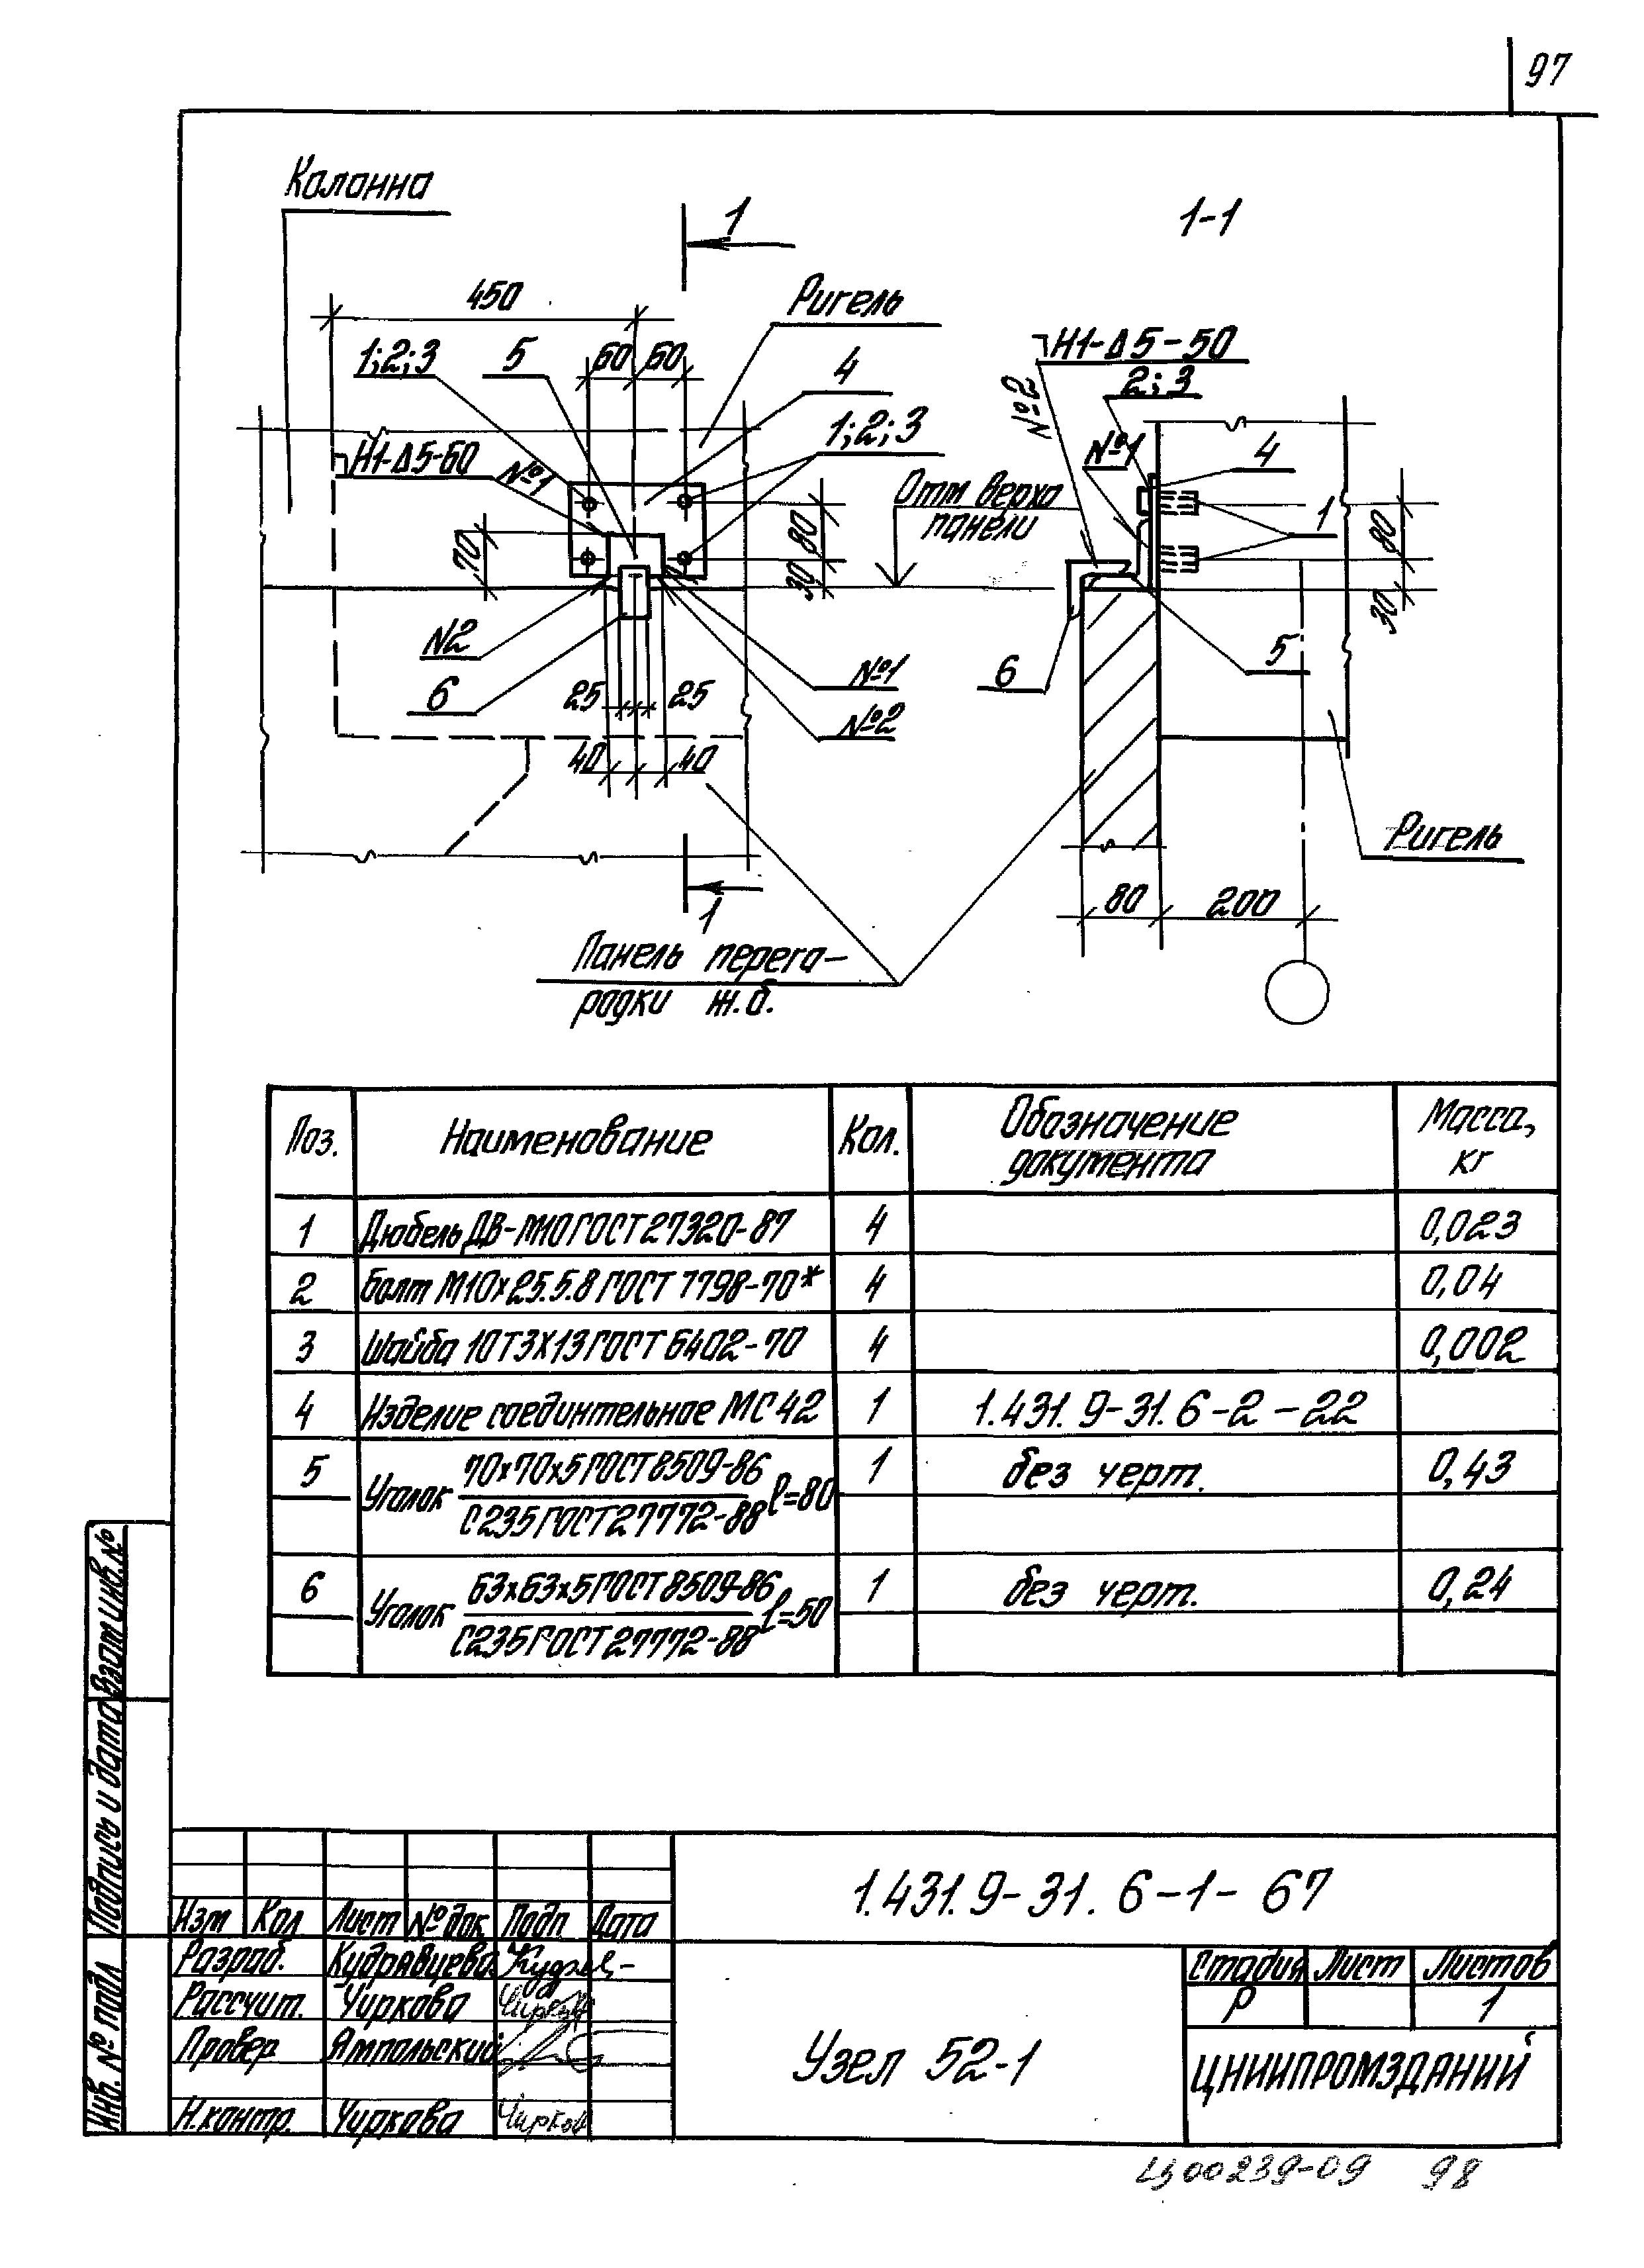 97
Колонна
1
1-1
450
Ригель
60 60
1;2;3
5
4
1;2;3
Н1-Δ5-60
№1
70
80
30
Отм верха
панели
N2
6
25 25
№1
№2
40 40
1
Панель перего-
родки ж.б.
Н1-Δ5-50
№2
2;3
№1
4
1
80
30
5
6
Ригель
80 200
Поз. Наименование Кол. Обозначение документа Масса, кг
1 Дюбель ДВ-М10 ГОСТ 27320-87 4 0,023
2 Болт М10х25.5.8 ГОСТ 7798-70* 4 0,04
3 Шайба 10Т3Х13 ГОСТ 6402-70 4 0,002
4 Изделие соединтельное МС42 1 1.431.9-31.6-2-22
5 Уголок 70х70х5 ГОСТ 8509-86 ℓ=80 1 без черт. 0,43
С235 ГОСТ 27772-88
6 Уголок 63х63х5 ГОСТ 8509-86 ℓ=50 1 без черт. 0,24
С235 ГОСТ 27772-88
Взам инв.№
Подпись и дата
Инв. № подл
1.431.9-31.6-1-67
Изм Кол Лист № док Подп Дата
Разраб. Кудрявцева
Рассчит. Чиркова
Провер Ямпольский
Н.контр. Чиркова
Узел 52-1
Стадия Лист Листов
Р 1
ЦНИИПРОМЗДАНИЙ
00239-09 98